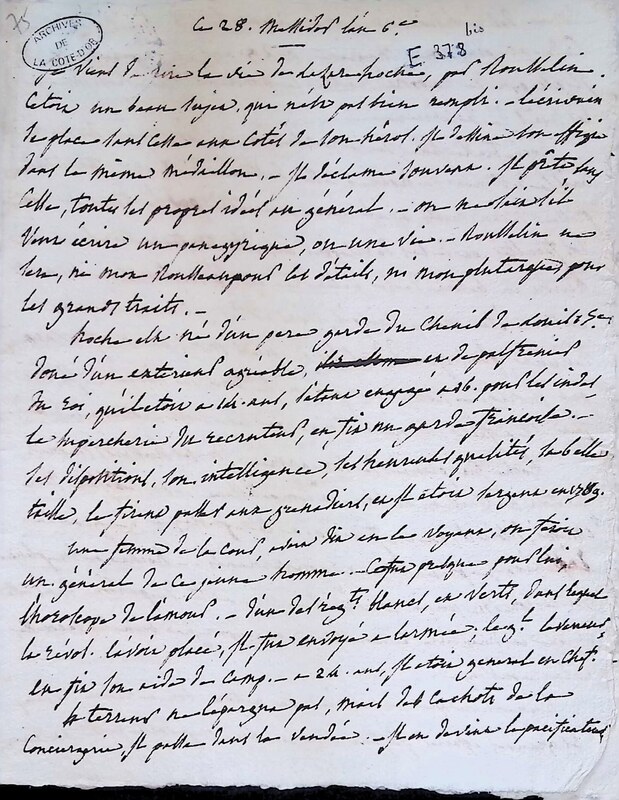 75
ARCHIVES
DE
LA COTE-D'OR
Ce 28. Messidor l'an 6.e
bis
E 378
Je viens de lire la vie de Lazare hoche, par Rousselin.
C'étoit un beau sujet, qui n'est pas bien rempli. - L'écrivain
se place sans cesse aux côtés de son héros. Il dessine son effigie
dans le même médaillon. - Il déclame souvent. Il prête sans
cesse, toutes ses propres idées au général. - on ne sait s'il
veut écrire un panégyrique, ou une vie. - Rousselin ne
sera, ni mon pour les détails, ni mon plutarque, pour
les grands traits. -
hoche est né d'un pere garde du Chenil de Louis 15.e
doué d'un exterieur agréable, et de palfrenier
du roi, qu'il étoit a 14. ans, s'étant engagé a 16. pour les indes
la supercherie du recruteur, en fit un garde françoise. -
ses dispositions, son intelligence, ses heureuses qualités, sa belle
taille, le firent passer aux grenadiers, et Il étoit sergent en 1789.
une femme de la cour, avoit dit en le voyant, on feroit
un général de ce jeune homme. - Ce fut presque pour lui,
l'horoscope de l'amour. - d'un des rég.ts blancs, et verts, dans lequel
la révol. l'avoit placé, Il fut envoyé a l'armée, le g.l Leveneur,
en fit son aide de camp. - a 24. ans, Il étoit general en Chef.
la terreur ne l'épargna pas, mais des Cachots de la
Conciergerie, Il passa dans la vendée. - Il en devint le pacificateur